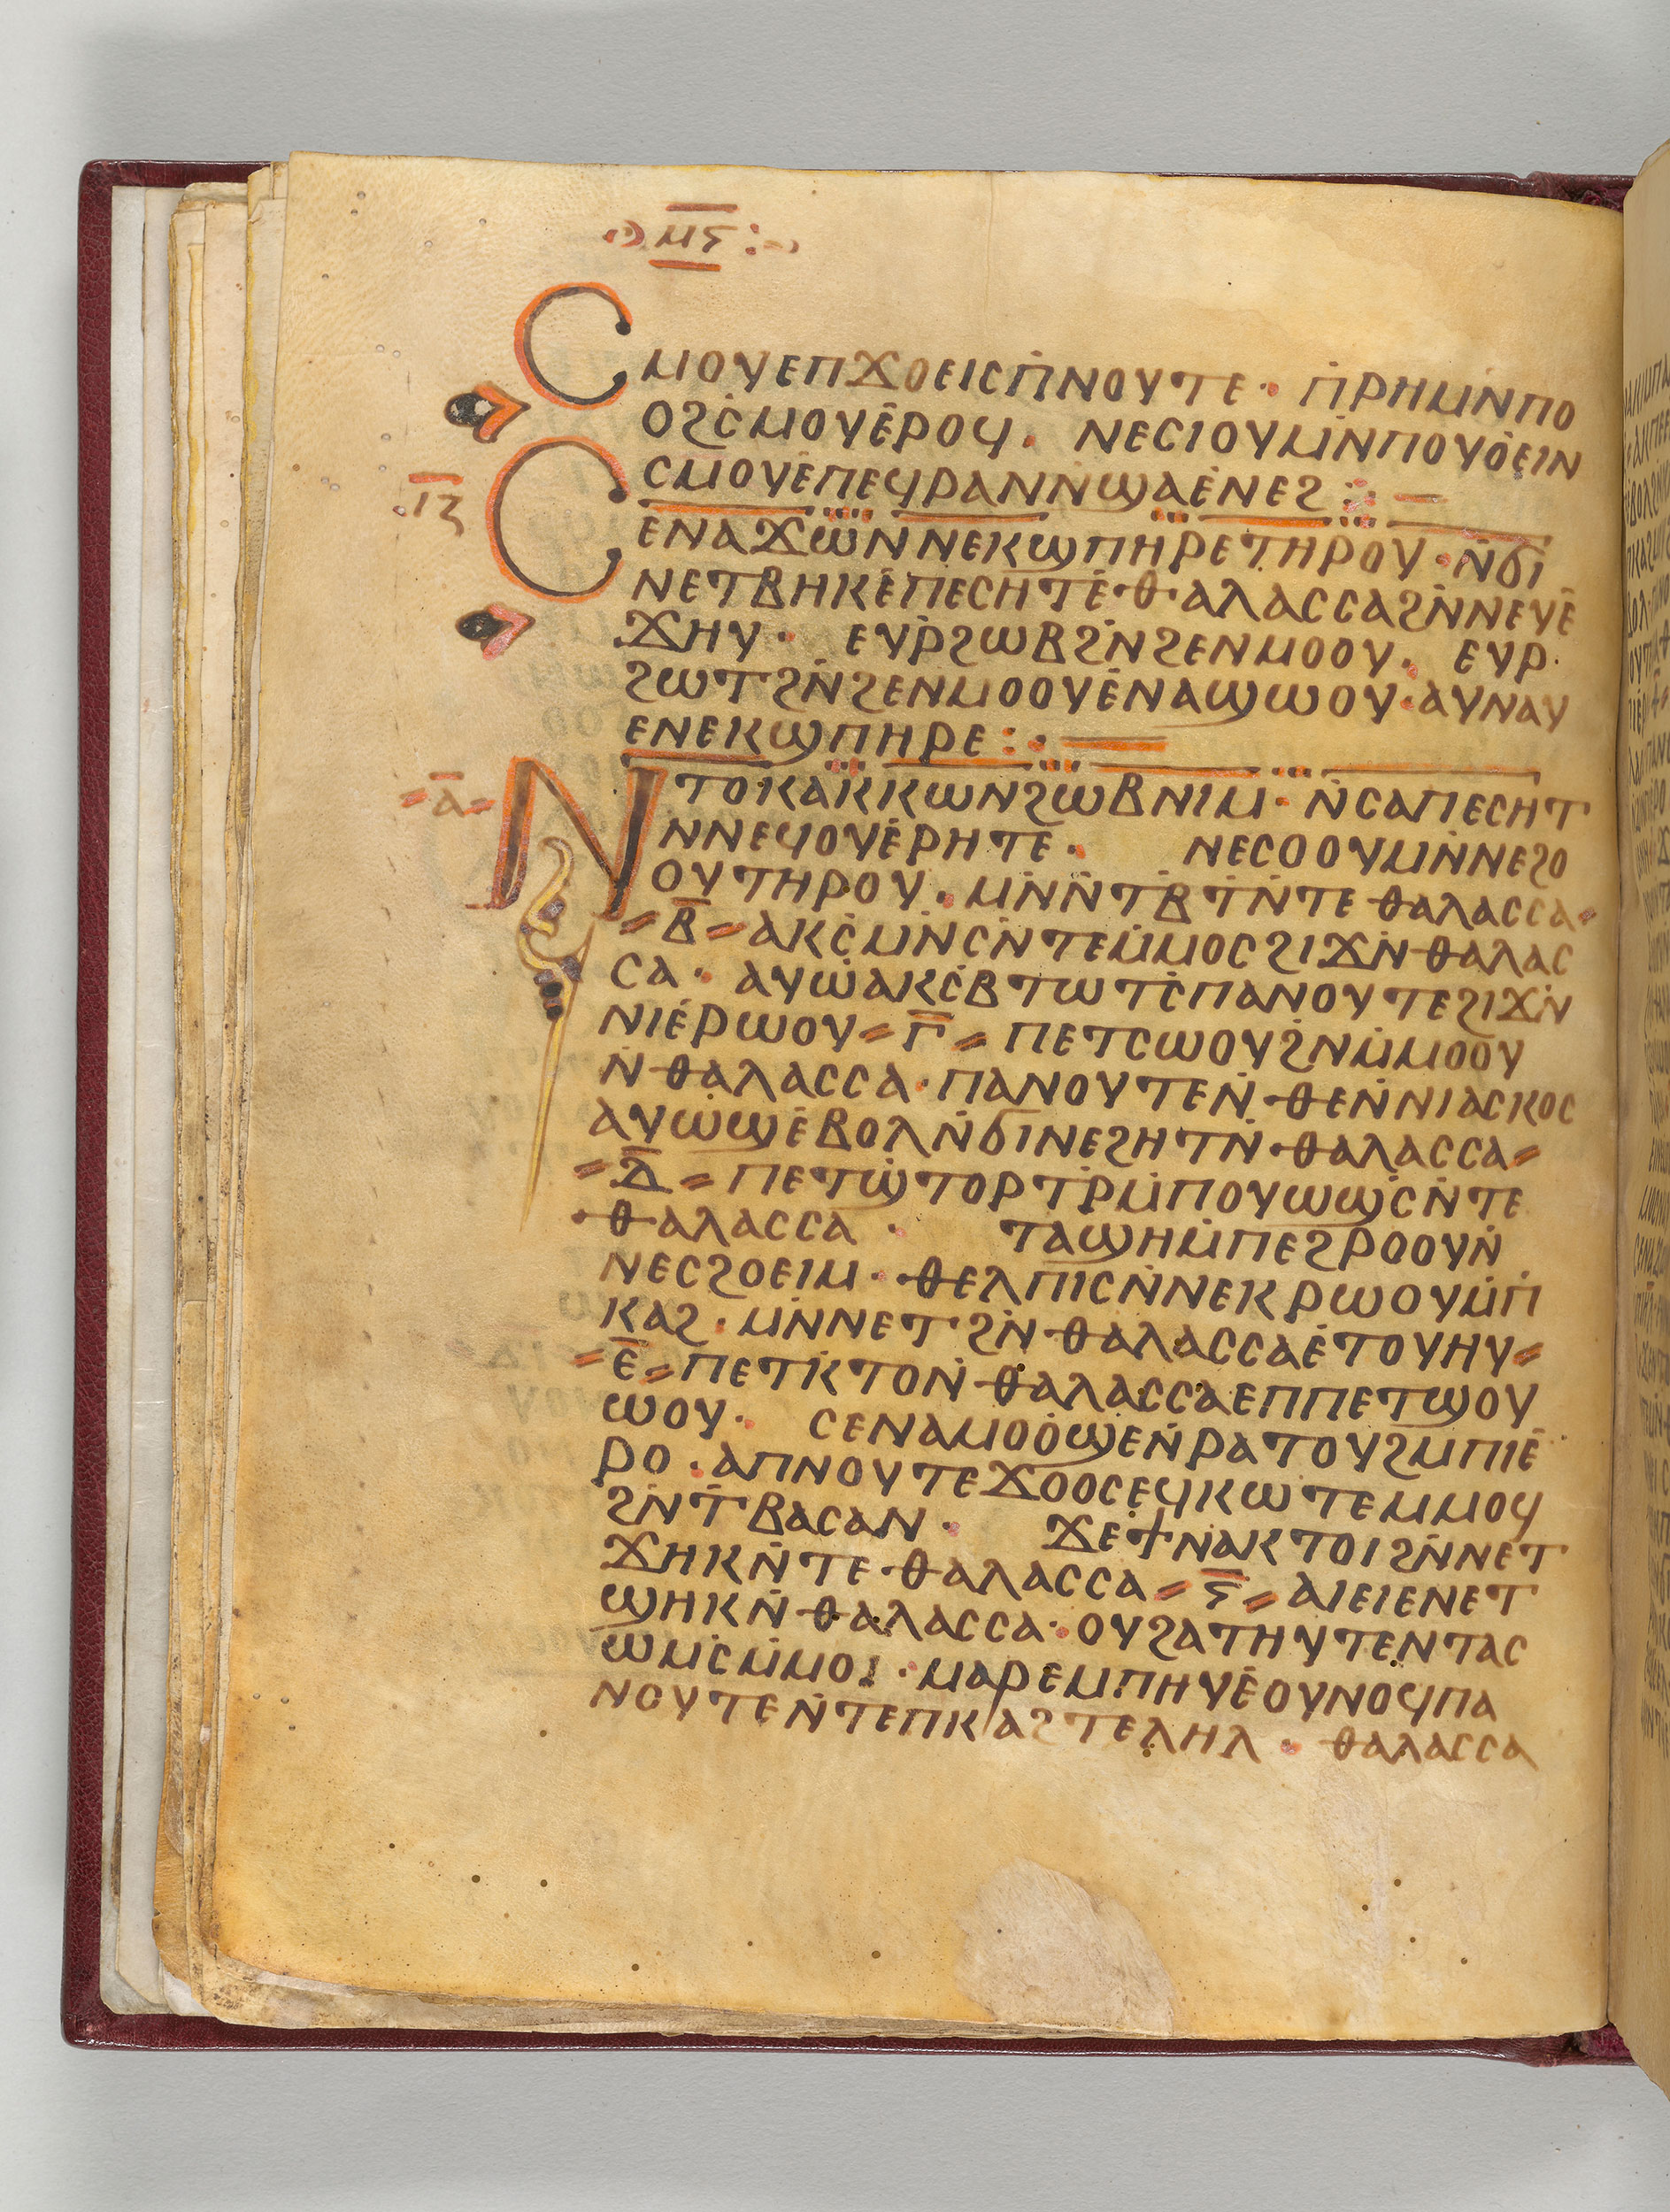 ⲙ̅ⲋ̅
Ⲥⲙⲟⲩⲉⲡϫⲟⲉⲓⲥⲡ̇ⲛⲟⲩⲧⲉ· ⲡ̇ⲣⲏⲙⲛ̇ⲡⲟ
ⲟϩⲥ̇ⲙⲟⲩⲉ̇ⲣⲟϥ· ⲛⲉⲥⲓⲟⲩⲙⲛ̇ⲡⲟⲩⲟ̇ⲉⲓⲛ
ⲥⲙⲟⲩⲉ̇ⲡⲉϥⲣⲁⲛⲛ̇ϣⲁⲉ̇ⲛⲉϩ:
ⲓ̅ⲍ̅
Ⲥⲉⲛⲁϫⲱ̇ⲛⲛⲉⲕϣⲡⲏⲣⲉⲧⲏⲣⲟⲩ·ⲛ̇ϭⲓ
ⲛⲉⲧⲃⲏⲕⲉ̇ⲡⲉⲥⲏⲧⲉ̇·ⲑⲁⲗⲁⲥⲥⲁϩⲛ̇ⲛⲉⲩⲉ̇
ϫⲏⲩ· ⲉⲩⲣ̇ϩⲱⲃϩⲛ̇ϩⲉⲛⲙⲟⲟⲩ· ⲉⲩⲣ·
ϩⲱⲧϩⲛ̇ϩⲉⲛⲙⲟⲟⲩⲉ̇ⲛⲁϣⲱⲟⲩ·ⲁⲩⲛⲁⲩ
ⲉⲛⲉⲕϣⲡⲏⲣⲉ:·
ⲁ̅
Ⲛⲧⲟⲕⲁⲕ̇ⲕⲱⲛϩⲱⲃⲛⲓⲙ·ⲛ̇ⲥⲁⲡⲉⲥⲏⲧ
ⲛⲛⲉϥⲟⲩⲉ̇ⲣⲏⲧⲉ· ⲛⲉⲥⲟⲟⲩⲙⲛ̇ⲛⲉϩⲟ
ⲟⲩⲧⲏⲣⲟⲩ·ⲙⲛ̇ⲛ̇ⲧⲃ̇ⲧ̇ⲛ̇ⲧⲉⲑⲁⲗⲁⲥⲥⲁ·
ⲃ̅ ⲁⲕⲥ̇ⲙⲛ̇ⲥⲛ̇ⲧⲉⲙ̇ⲙⲟⲥϩⲓϫⲛ̇ⲑⲁⲗⲁⲥ
ⲥⲁ· ⲁⲩⲱ̇ⲁⲕⲥ̇ⲃⲧⲱⲧⲥ̇ⲡⲁⲛⲟⲩⲧⲉϩⲓϫⲛ̇
ⲛⲓⲉ̇ⲣⲱⲟⲩ ⲅ̅ ⲡⲉⲧⲥⲱⲟⲩϩⲛ̇ⲙ̇ⲙⲟⲟⲩ
ⲛ̇ⲑⲁⲗⲁⲥⲥⲁ·ⲡⲁⲛⲟⲩⲧⲉⲛ̇·ⲑⲉⲛ̇ⲛⲓⲁⲥⲕⲟⲥ
ⲁⲩⲱ̇ϣⲉ̇ⲃⲟⲗⲛ̇ϭⲓⲛⲉϩⲏⲧⲛ̇·ⲑⲁⲗⲁⲥⲥⲁ
ⲇ̅ ⲡⲉⲧϣ̇ⲧⲟⲣⲧ̇ⲣⲙ̇ⲡⲟⲩⲱϣⲥ̇ⲛ̇ⲧⲉ
ⲑⲁⲗⲁⲥⲥⲁ· ⲧⲁϣⲏⲙ̇ⲡⲉϩⲣⲟⲟⲩⲛ̇
ⲛⲉⲥϩⲟⲉⲓⲙ·ⲑⲉⲗⲡⲓⲥⲛ̇ⲛⲉⲕⲣⲱⲟⲩⲙ̇ⲡ̇
ⲕⲁϩ·ⲙⲛ̇ⲛⲉⲧϩⲛ̇ⲑⲁⲗⲁⲥⲥⲁⲉ̇ⲧⲟⲩⲏⲩ
ⲉ̅ ⲡⲉⲧⲕ̇ⲧⲟⲛ̇ⲑⲁⲗⲁⲥⲥⲁⲉⲡⲡⲉⲧϣⲟⲩ
ⲱⲟⲩ· ⲥⲉⲛⲁⲙⲟⲟ̇ϣⲉⲛ̇ⲣⲁⲧⲟⲩϩⲙⲡⲓⲉ̇
ⲣⲟ·ⲁⲡⲛⲟⲩⲧⲉϫⲟⲟⲥⲉϥⲕⲱⲧⲉⲙⲙⲟϥ
ϩⲛ̇ⲧ̇ⲃⲁⲥⲁⲛ· ϫⲉϯⲛⲁⲕⲧⲟⲓϩⲛ̇ⲛⲉⲧ
ϫⲏⲕⲛ̇ⲧⲉⲑⲁⲗⲁⲥⲥⲁ ⲋ̅ ⲁⲓⲉⲓⲉⲛⲉⲧ
ϣⲏⲕⲛ̇ⲑⲁⲗⲁⲥⲥⲁ·ⲟⲩϩⲁⲧⲏⲩⲧⲉⲛⲧⲁⲥ
ⲱⲙⲥ̇ⲙ̇ⲙⲟⲓ·ⲙⲁⲣⲉⲙⲡⲏⲩⲉ̇ⲟⲩⲛⲟϥⲡⲁ
ⲛⲟⲩⲧⲉⲛ̇ⲧⲉⲡⲕⲁϩⲧⲉⲗⲏⲗ· ⲑⲁⲗⲁⲥⲥⲁ